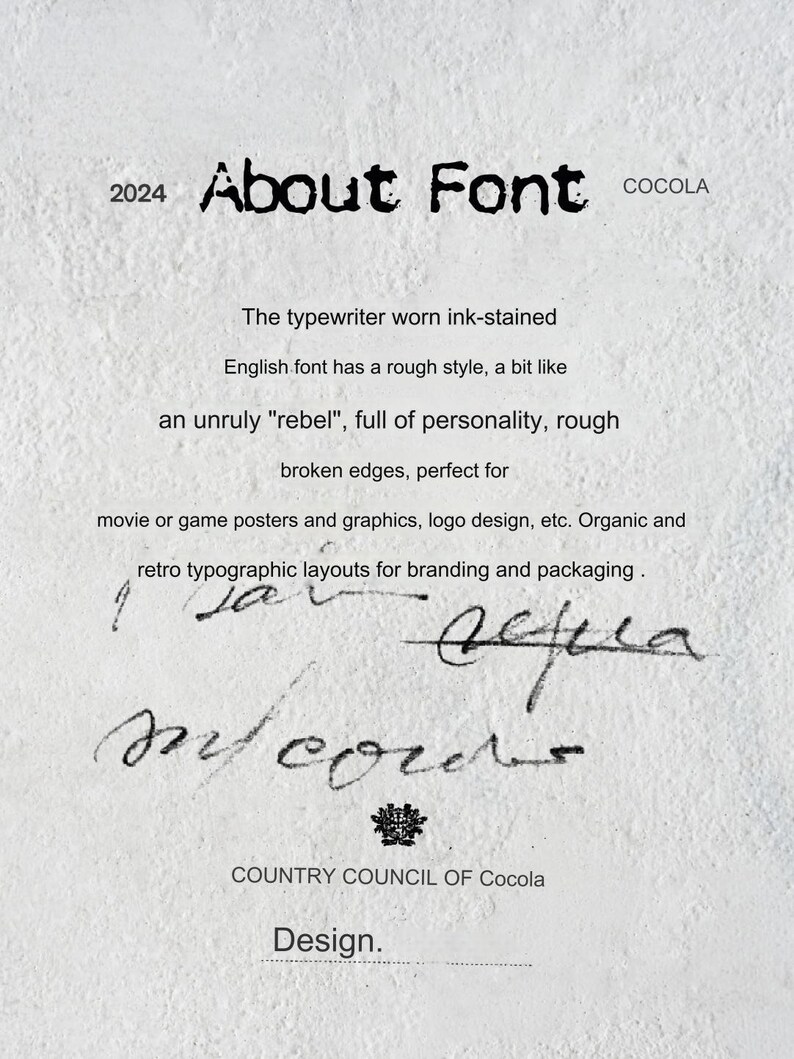 2024 About Font COCOLA
The typewriter worn ink-stained
English font has a rough style, a bit like
an unruly "rebel", full of personality, rough
broken edges, perfect for
movie or game posters and graphics, logo design, etc. Organic and
retro typographic layouts for branding and packaging .
COUNTRY COUNCIL OF Cocola
Design.